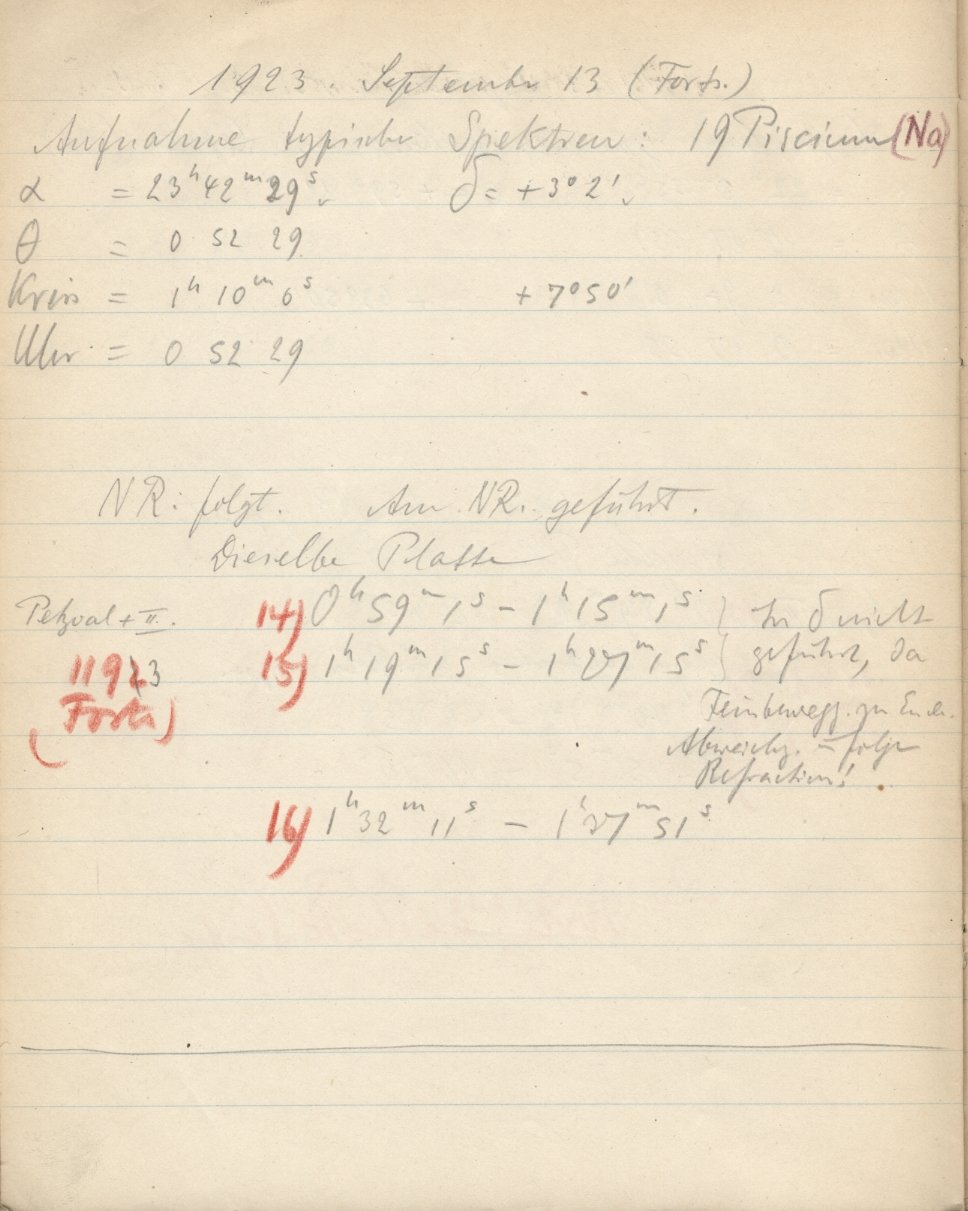 1923 September 13 (Forts.)
Aufnahme typischer Spektren: 19 Piscium (Na)
α = 23ʰ 42ᵐ 29ˢ δ = +3° 2'
θ = 0 52 29
Kreis = 1ʰ 10ᵐ 6ˢ +7° 50'
Uhr = 0 52 29
NR. folgt. Am NR. geführt.
Dieselbe Platte
Petzval + II. 14) 0ʰ 59ᵐ 1ˢ – 1ʰ 15ᵐ 1ˢ } In δ nicht
11923 15) 1ʰ 19ᵐ 15ˢ – 1ʰ 27ᵐ 15ˢ } geführt, da
(Forts.) Feinbewegg. zu Ende.
Abweichg. infolge
Refraction!
16) 1ʰ 32ᵐ 11ˢ – 1ʰ 37ᵐ 51ˢ